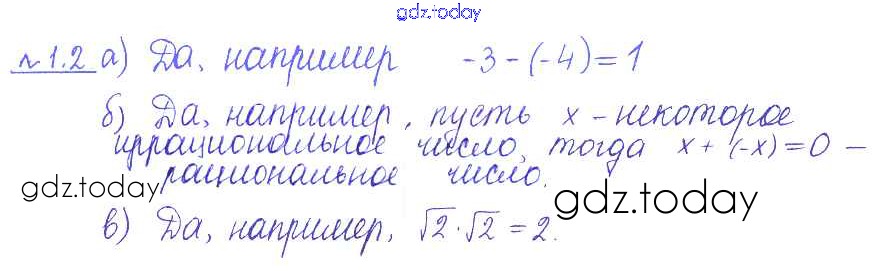 gdz.today
№1.2 а) Да, например -3-(-4)=1
б) Да, например, пусть x - некоторое
иррациональное число, тогда x+(-x)=0 -
рациональное число.
gdz.today
gdz.today
в) Да, например, √2·√2=2.